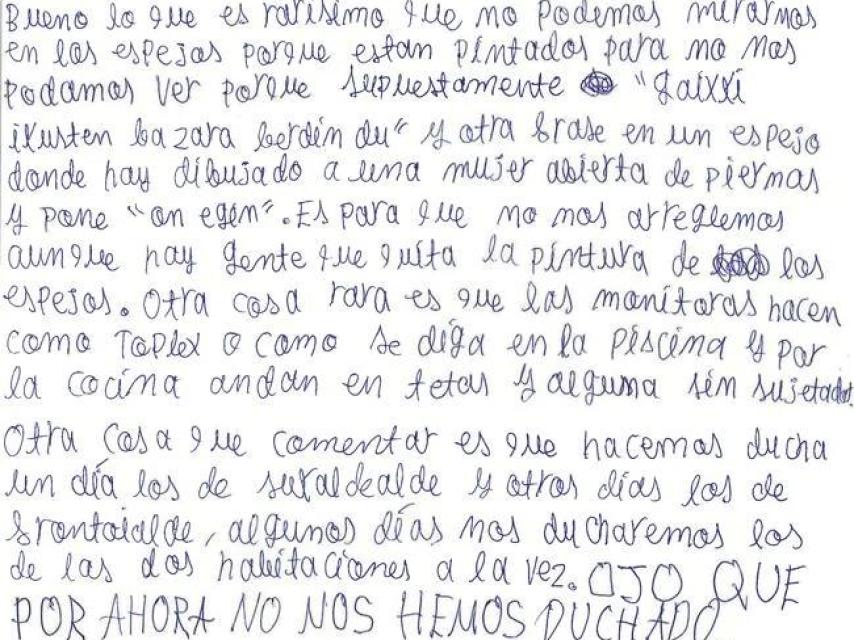 Bueno lo que es rarísimo que no podemos mirarnos
en los espejos porque estan pintados para no nos
podamos ver porque supuestamente "gaixki
ikusten bazara berdin du" y otra frase en un espejo
donde hay dibujado a una mujer abierta de piernas
y pone "on egin". Es para que no nos arreglemos
aunque hay gente que quita la pintura de los
espejos. Otra cosa rara es que las monitoras hacen
como Toplex o como se diga en la piscina y por
la cocina andan en tetas y alguna sin sujetador.
Otra cosa que comentar es que hacemos ducha
un día los de sukaldealde y otros días los de
frontoialde, algunos días nos ducharemos los
de las dos habitaciones a la vez. OJO QUE
POR AHORA NO NOS HEMOS DUCHADO